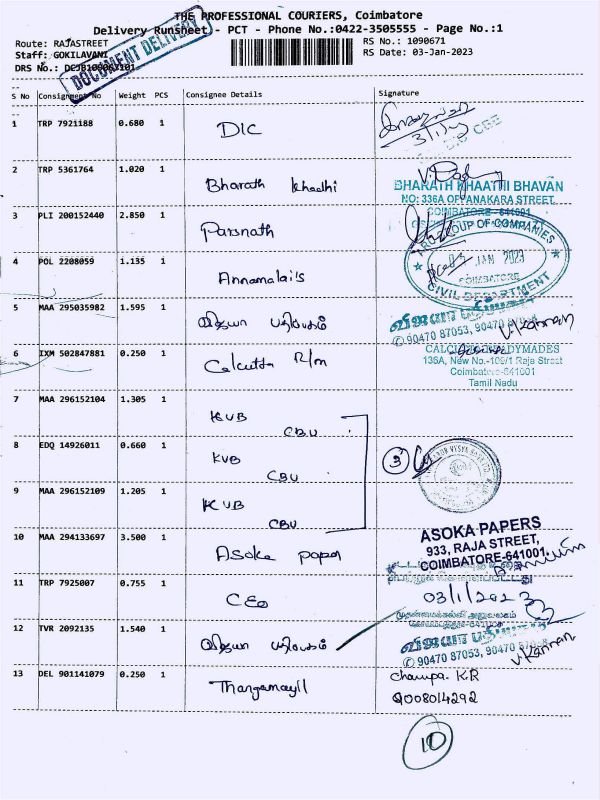 THE PROFESSIONAL COURIERS, Coimbatore
Delivery Runsheet - PCT - Phone No.:0422-3505555 - Page No.:1
Route: RAJASTREET
RS No.: 1090671
Staff: GOKILAVANI
RS Date: 03-Jan-2023
DRS No.:
DOCUMENT DELIVERY
S No Consignment No Weight PCS Consignee Details Signature
1 TRP 7921188 0.680 1 DIC
2 TRP 5361764 1.020 1 Bharath Khadhi
BHARATH KHAATHI BHAVAN
NO: 336A OPPANAKARA STREET,
COIMBATORE - 641001
3 PLI 200152440 2.850 1 Parsnath
4 POL 2208059 1.135 1 Annamalai's
JAN 2023
COIMBATORE
CIVIL DEPARTMENT
5 MAA 295035982 1.595 1 விஜயா பதிப்பகம்
விஜயா பதிப்பகம்
90470 87053, 90470
V. Kannan
6 IXM 502847881 0.250 1 Calcutta R/m
136A, New No.-109/1 Raja Street
Coimbatore-641001
Tamil Nadu
7 MAA 296152104 1.305 1 KVB
CBU
8 EDQ 14926011 0.660 1 KVB
CBU
3
9 MAA 296152109 1.205 1 KVB
CBU
10 MAA 294133697 3.500 1 Asoka paper
ASOKA PAPERS
933, RAJA STREET,
COIMBATORE-641001.
11 TRP 7925007 0.755 1 CEO
03/1/2023
முதன்மைக்கல்வி அலுவலகம்
12 TVR 2092135 1.540 1 விஜயா பதிப்பகம்
விஜயா பதிப்பகம்
90470 87053, 90470
V. Kannan
13 DEL 901141079 0.250 1 Thangamayil
Champa. K.R
9008014292
10